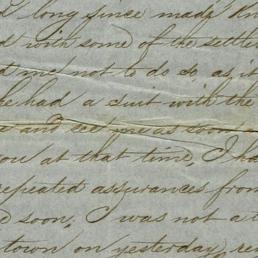 long since made kn
d with some of the settle
d me, not to do so, as it
he had a suit with the
e and see me as soon a
you at that time, I ha
repeated assurances from
d soon. I was not a
town on yesterday, re